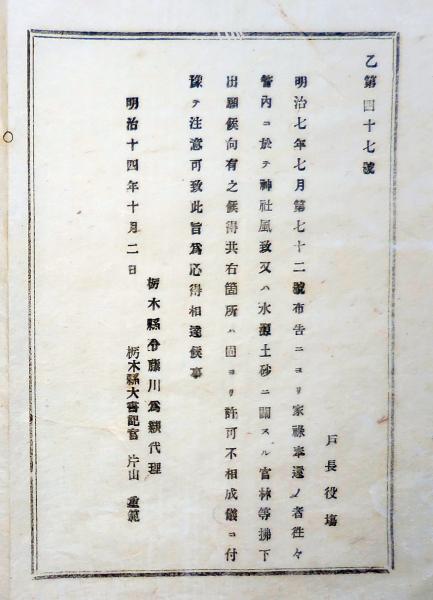 乙第四十七號
戸長役塲
明治七年七月第七十二號布告ニヨリ家祿奉還ノ者往々
管内ニ於テ神社風致又ハ水源土砂ニ關スル官林等拂下
出願候向有之候得共右箇所ハ固ヨリ許可不相成儀ニ付
豫テ注意可致此旨爲心得相達候事
明治十四年十月二日
栃木縣令藤川爲親代理
栃木縣大書記官 片山 重範